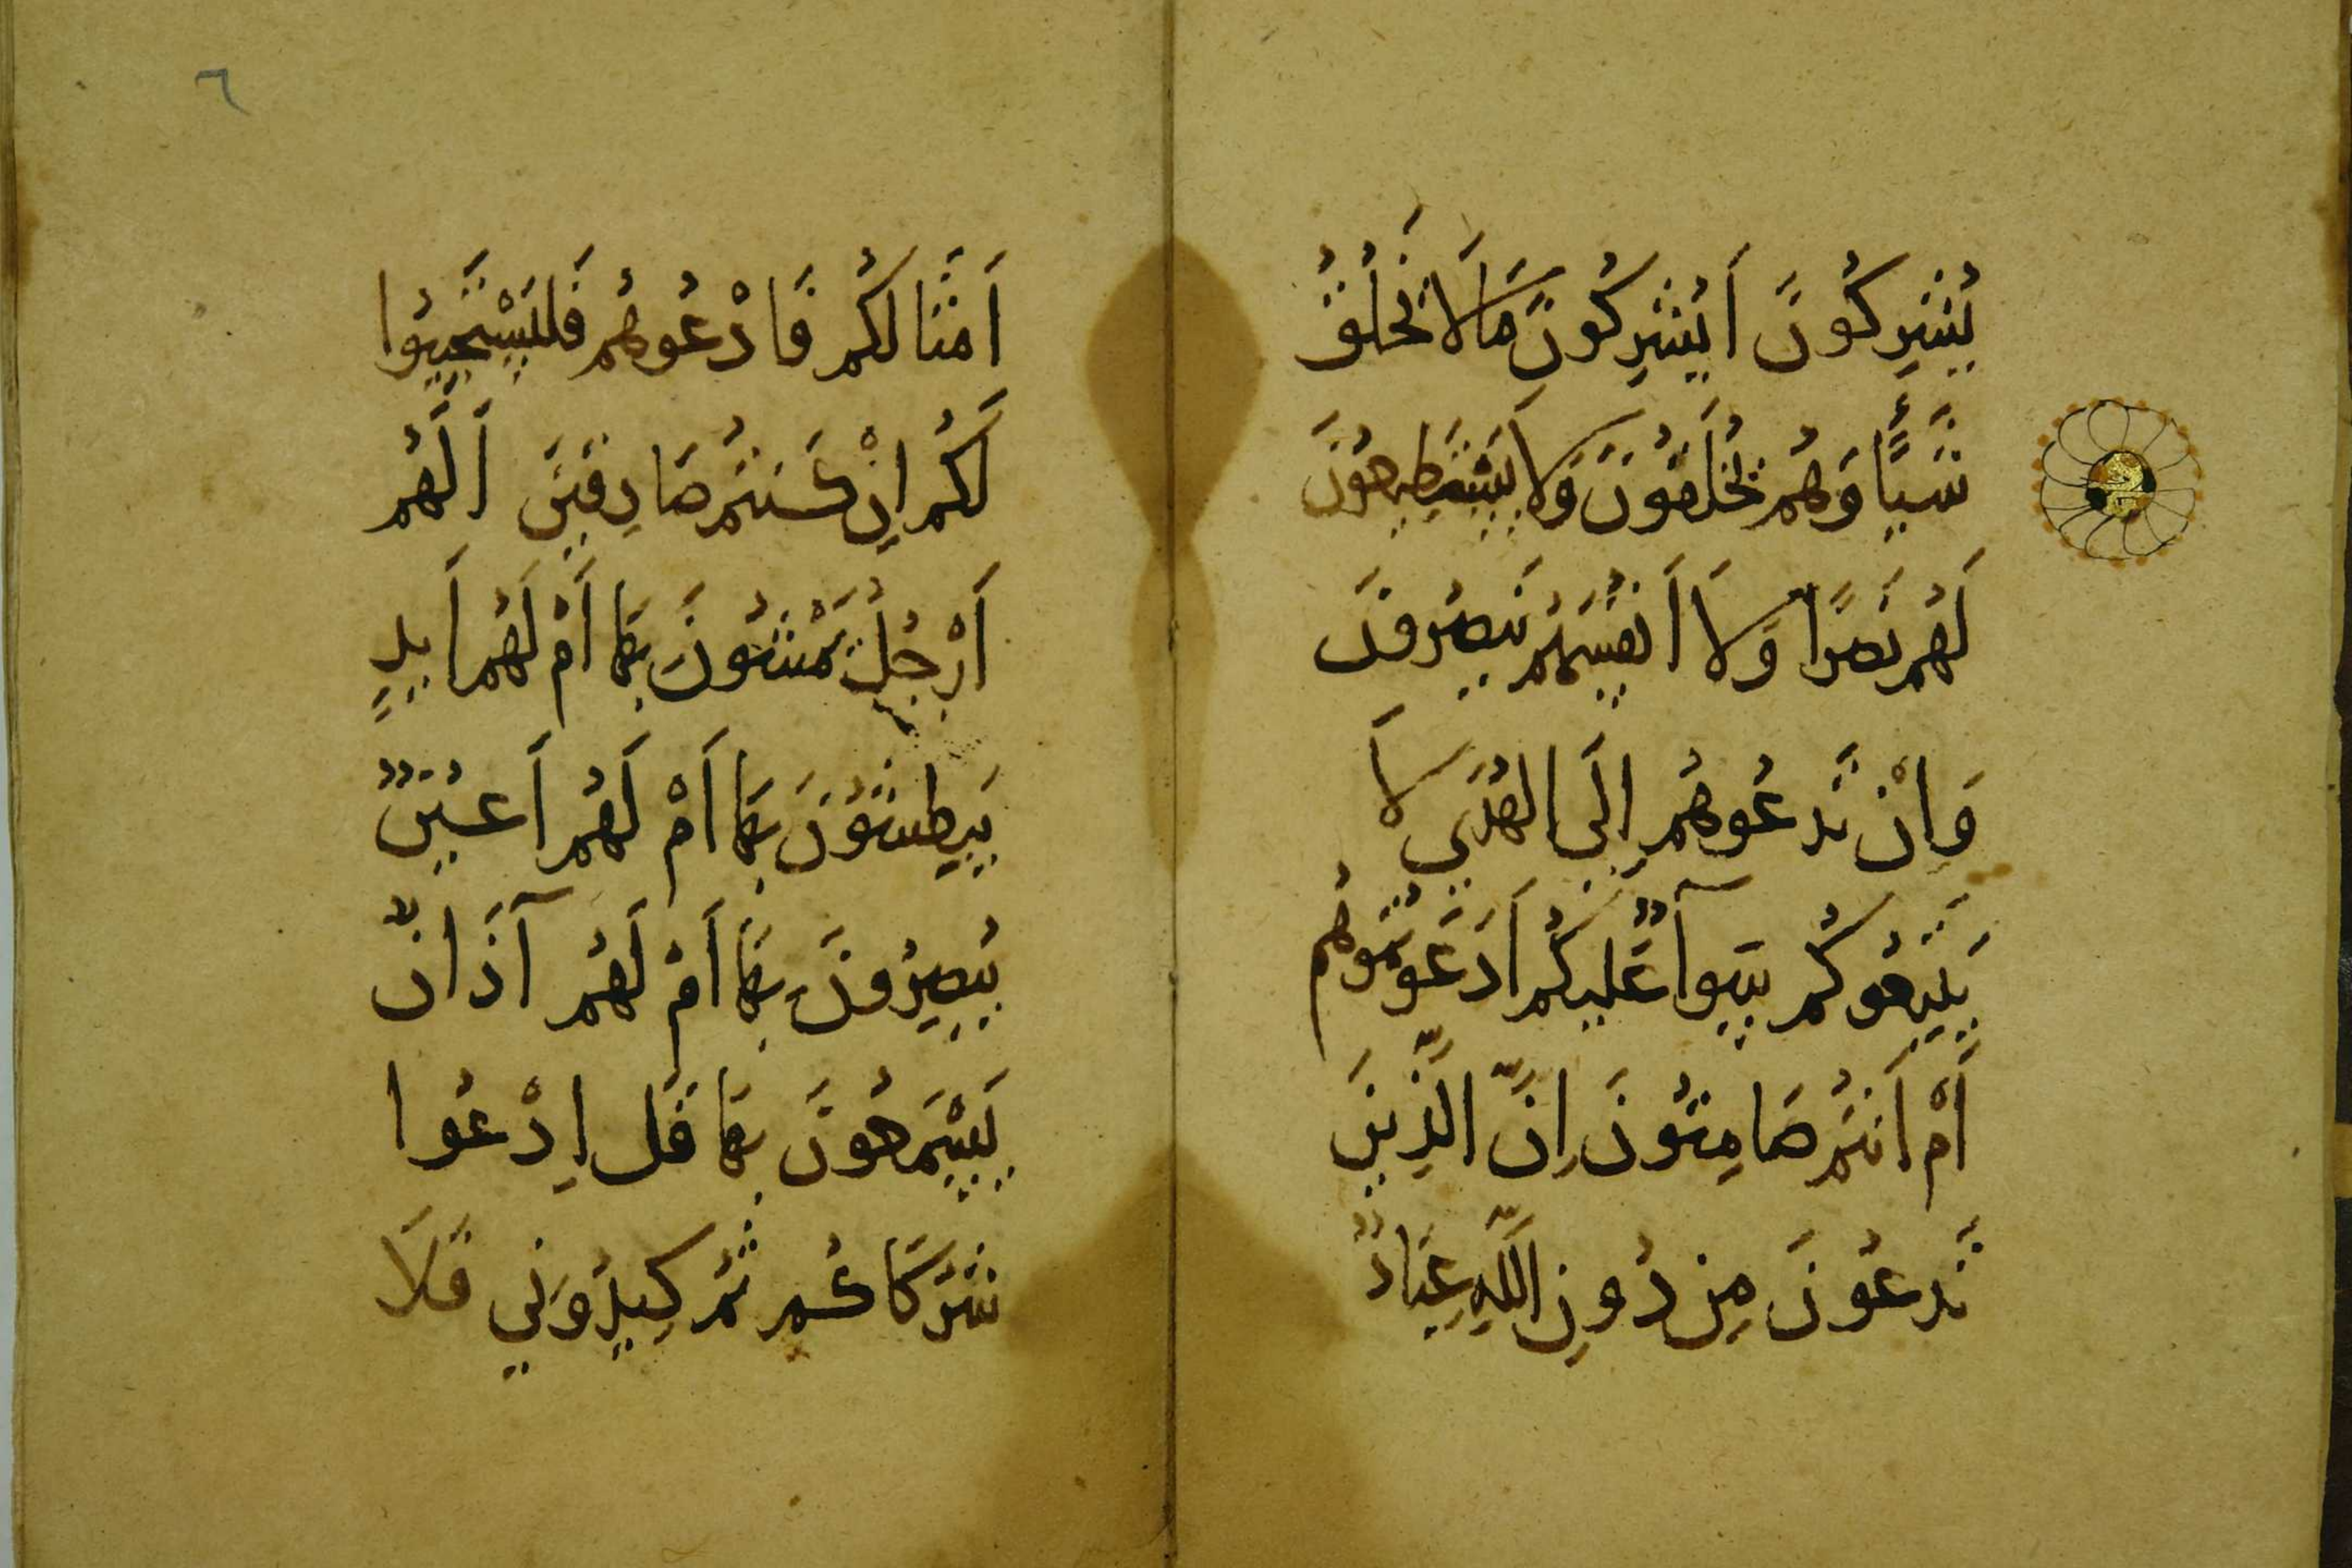 يُشْرِكُونَ أَيُشْرِكُونَ مَا لَا يَخْلُقُ
شَيْئًا وَهُمْ يُخْلَقُونَ وَلَا يَسْتَطِيعُونَ
لَهُمْ نَصْرًا وَلَا أَنْفُسَهُمْ يَنْصُرُونَ
وَإِنْ تَدْعُوهُمْ إِلَى الْهُدَى لَا
يَتَّبِعُوكُمْ سَوَآءٌ عَلَيْكُمْ أَدَعَوْتُمُوهُمْ
أَمْ أَنْتُمْ صَامِتُونَ إِنَّ الَّذِينَ
تَدْعُونَ مِنْ دُونِ اللَّهِ عِبَادٌ
٦
أَمْثَالُكُمْ فَادْعُوهُمْ فَلْيَسْتَجِيبُوا
لَكُمْ إِنْ كُنْتُمْ صَادِقِينَ أَلَهُمْ
أَرْجُلٌ يَمْشُونَ بِهَا أَمْ لَهُمْ أَيْدٍ
يَبْطِشُونَ بِهَا أَمْ لَهُمْ أَعْيُنٌ
يُبْصِرُونَ بِهَا أَمْ لَهُمْ آذَانٌ
يَسْمَعُونَ بِهَا قُلِ ادْعُوا
شُرَكَاكُمْ ثُمَّ كِيدُونِي فَلَا